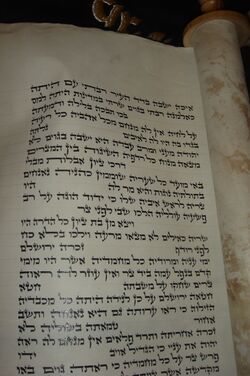 איכה ישבה בדד העיר רבתי עם היתה
כאלמנה רבתי בגוים שרתי במדינות היתה למס
בכו תבכה בלילה ודמעתה
על לחיה אין לה מנחם מכל אהביה כל רעיה
בגדו בה היו לה לאיבים גלתה
יהודה מעני ומרב עבדה היא ישבה בגוים לא
מצאה מנוח כל רדפיה השיגוה בין המצרים
דרכי ציון אבלות מבלי
באי מועד כל שעריה שוממין כהניה נאנחים
בתולתיה נוגות והיא מר לה היו
צריה לראש איביה שלו כי יהוה הוגה על רב
פשעיה עולליה הלכו שבי לפני צר
ויצא מן בת ציון כל הדרה היו
שריה כאילים לא מצאו מרעה וילכו בלא כח
לפני רודף זכרה ירושלם
ימי עניה ומרודיה כל מחמדיה אשר היו מימי
קדם בנפל עמה ביד צר ואין עוזר לה ראוה
צרים שחקו על משבתה חטא
חטאה ירושלם על כן לנידה היתה כל מכבדיה
הזילוה כי ראו ערותה גם היא נאנחה ותשב
אחור טמאתה בשוליה לא
זכרה אחריתה ותרד פלאים אין מנחם לה ראה
יהוה את עניי כי הגדיל אויב ידו
פרש צר על כל מחמדיה כי ראתה גוים באו